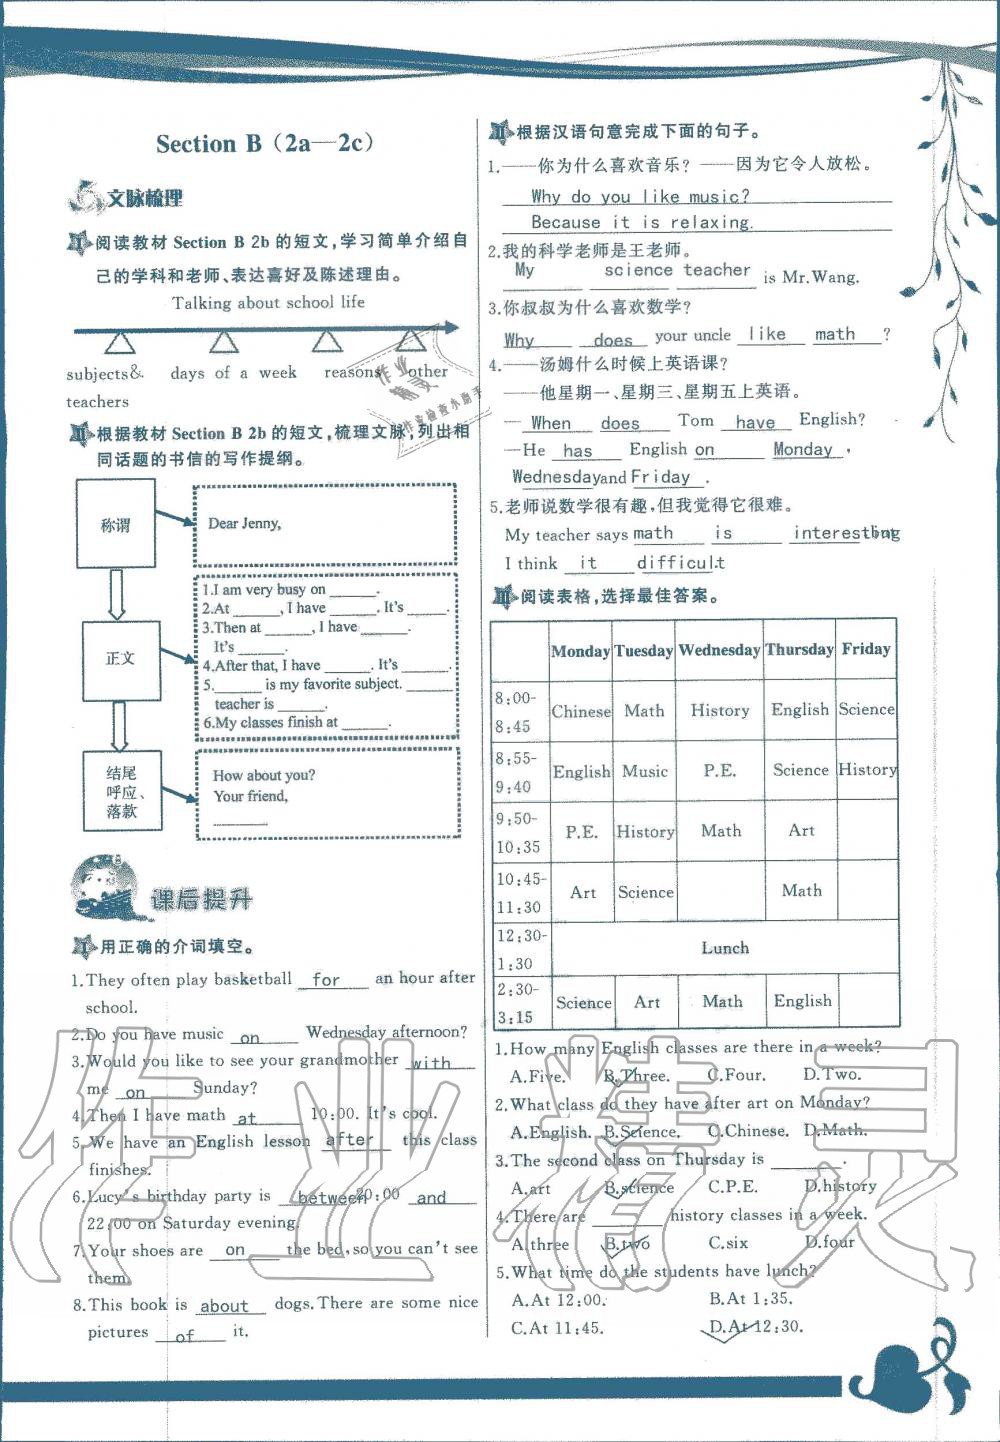 Section B（2a—2c）
文脉梳理
Ⅰ 阅读教材 Section B 2b 的短文,学习简单介绍自
己的学科和老师、表达喜好及陈述理由。
Talking about school life
subjects& days of a week reasons other
teachers
Ⅱ 根据教材 Section B 2b 的短文,梳理文脉,列出相
同话题的书信的写作提纲。
称谓
Dear Jenny,
正文
1.I am very busy on ______.
2.At ______, I have ______. It's ______.
3.Then at ______, I have ______.
It's ______.
4.After that, I have ______. It's ______.
5.______ is my favorite subject. ______
teacher is ______.
6.My classes finish at ______.
结尾
呼应、
落款
How about you?
Your friend,
______
课后提升
Ⅰ 用正确的介词填空。
1.They often play basketball for an hour after
school.
2.Do you have music on Wednesday afternoon?
3.Would you like to see your grandmother with
me on Sunday?
4.Then I have math at 10:00. It's cool.
5.We have an English lesson after this class
finishes.
6.Lucy's birthday party is between 20:00 and
22:00 on Saturday evening.
7.Your shoes are on the bed,so you can't see
them.
8.This book is about dogs.There are some nice
pictures of it.
Ⅱ 根据汉语句意完成下面的句子。
1.——你为什么喜欢音乐? ——因为它令人放松。
Why do you like music?
Because it is relaxing.
2.我的科学老师是王老师。
My science teacher is Mr.Wang.
3.你叔叔为什么喜欢数学?
Why does your uncle like math ?
4.——汤姆什么时候上英语课?
——他星期一、星期三、星期五上英语。
—When does Tom have English?
—He has English on Monday ,
Wednesday and Friday .
5.老师说数学很有趣,但我觉得它很难。
My teacher says math is interesting but
I think it difficult.
Ⅲ 阅读表格,选择最佳答案。
Monday Tuesday Wednesday Thursday Friday
8:00-8:45 Chinese Math History English Science
8:55-9:40 English Music P.E. Science History
9:50-10:35 P.E. History Math Art
10:45-11:30 Art Science Math
12:30-1:30 Lunch
2:30-3:15 Science Art Math English
1.How many English classes are there in a week?
A.Five. B.Three. C.Four. D.Two.
2.What class do they have after art on Monday?
A.English. B.Science. C.Chinese. D.Math.
3.The second class on Thursday is ______.
A.art B.science C.P.E. D.history
4.There are ______ history classes in a week.
A.three B.two C.six D.four
5.What time do the students have lunch?
A.At 12:00. B.At 1:35.
C.At 11:45. D.At 12:30.
作业精灵